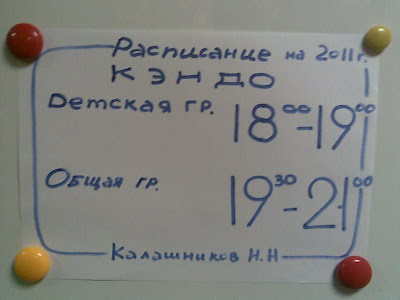 Расписание на 2011г.
КЭНДО
Детская гр. 18⁰⁰-19⁰⁰
Общая гр. 19³⁰-21⁰⁰
Калашников Н.Н